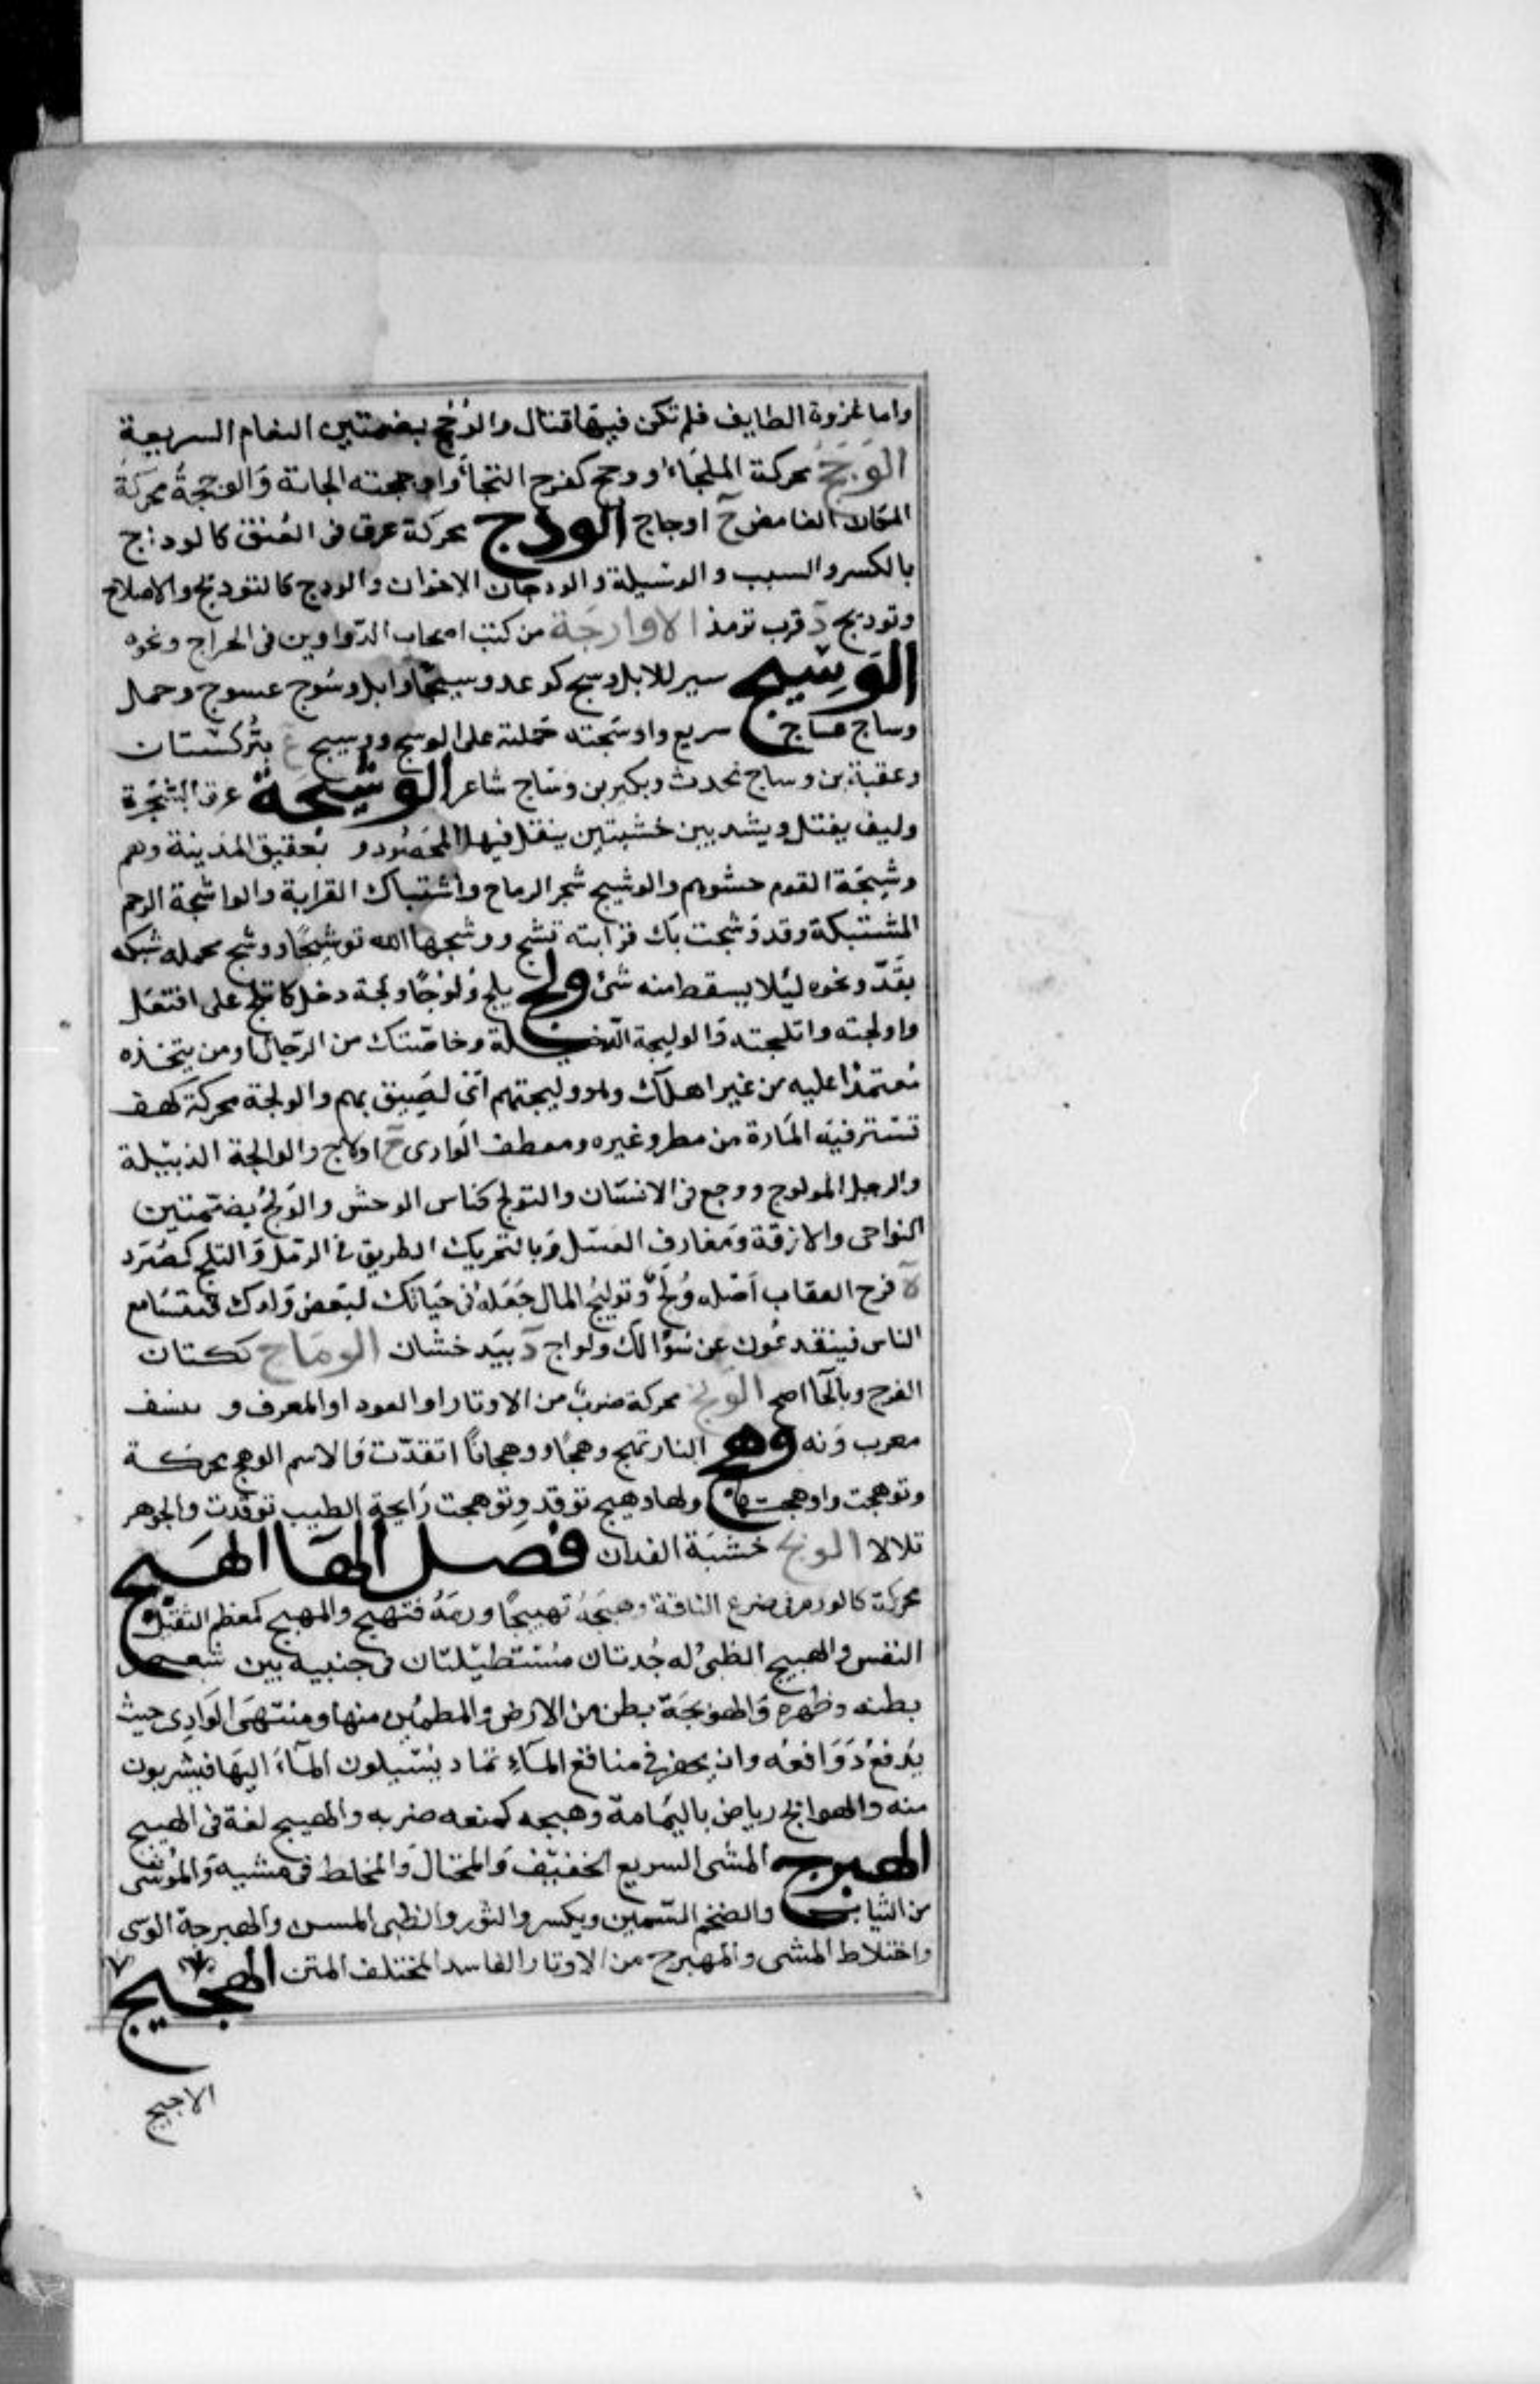 واما غزوة الطايف فلم تكن فيها قتال والوُجُج بضمتين النعام السريعة
الوَجَحُ محركة الملجَاء ووحج كفرح التجأ واوحجته الجاته وَالوحجةُ محركة
المكان الغامض ج اوجاج الودج محركة عرق فى العُنق كالوداج
بالكسر والسبب والوسيلة والودجان الاخوان والودج كالتوديج والاصلاح
وتوديج د قرب ترمذ الاوارجَة من كتب اصحاب الدّواوين فى الخراج ونحوه
الوَسِيج سير للابل وسج كوعد وسيجًا وابل وسُوج عسوج وجمل
وساج عساج سريع واوسَجته حَملته على الوسج ووسيج ع بتُركستان
وعقبة بن وساج محدث وبكير بن وساج شاعر الوشيجة عرق الشجَرة
وليف يفتل ويشد بين خشبتين ينقل فيها المحصُود و ع بعقيق المدينة وهم
وشيجَة القوم حشوهم والوشيج شجر الرماح واشتباك القرابة والواشجة الرحم
المشتبكة وقد وَشجت بك قرابته تشج ووشجها الله توشيجًا ووشج محمله شبكه
بقَدّ ونحوه ليُلا يسقط منه شئ ولج يلج وُلوُجًا ولجة دخل كاتلج على افتعَل
واولجته واتلجته وَالوليجة الدّخيلة وخاصّتك من الرّجال او من يتخذه
مُعتمدًا عليه من غير اهلك وهو وليجتهم اىْ لصَيق بهم والولجة محركة كهف
تستتر فيه المَارة من مطر وغيره ومعطف الوادى ج اولاج والوالجة الدبيلة
والرجل المولوج ووجع فى الانسَان والتولج كناس الوحش والوُلُج بضمّتين
النواحى والازقة ومَغارف العسَل وَبالتحريك الطريق فى الرمَل وَالتلج كصُرَد
لا فرخ العقاب اصْله وُلَج وَتوليجُ المال جَعْلهُ فى حَياتك لبَعض وَلدك فيتسَامع
الناس فينقدعُون عن سُؤالك وولواج د ببَدخشان الومَاج ككتان
الفرج وبالحَا اصح الوَنَج محركة ضربٌ من الاوتار او العود او المعزف و ة بنسف
معرب وَنه وهج النار تهج وهجًا ووهجانًا اتقدّت وَالاسم الوهج محركة
وتوهجت واوهجتها ولها وهيج توقد وتوهجت رَايحة الطيب توقدت والجوهر
تلالا الويج خشبَة الفدان فصل الهَا الهَبَج
محركة كالورم فى ضرع الناقة وهبّجَهُ تهبيجًا ورمَهُ فتهبج والمهبج كمعظم الثقيْل
النفس والهبيج الظبىُ له جُدتان مُستطيْلتان فى جنبيه بين شعر
بطنه وظهره وَالهوبجَة بطن من الارض والمطمئن منها ومنتهَى الوَادى حيث
يَدفعُ دَوَافعُه وان يحفر فى مناقع المَاءِ ثماد يُسَيلون المَآءَ اليهَا فيشربون
منه والهوابج رياض باليَمامة وهبجه كمنعه ضربه والهييج لغة فى الهبيج
الهبرج المشى السريع الخفيف وَالمختال وَالمخلط فى مشيه وَالمُوشى
من الثياب والضخم السّمين ويكسر والثور والظبى المسن والهبرجة الوشى
واختلاط المشى والمهبرج من الاوتار الفاسد المختلف المتن الهجيج
الاجيج